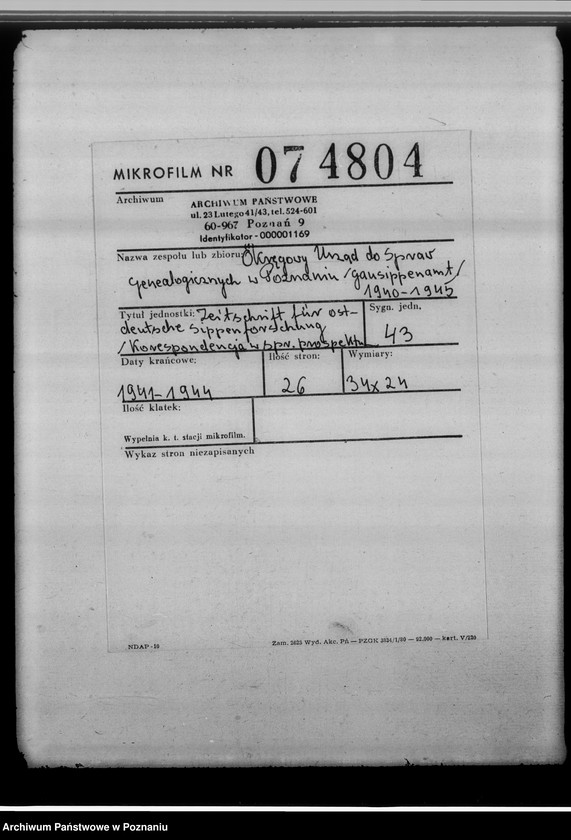 MIKROFILM NR 074804
Archiwum
ARCHIWUM PAŃSTWOWE
ul. 23 Lutego 41/43, tel. 524-601
60-967 Poznań 9
Identyfikator - 000001169
Nazwa zespołu lub zbioru: Okręgowy Urząd do Spraw
Genealogicznych w Poznaniu /Gausippenamt/
1940-1945
Tytuł jednostki: Zeitschrift für ost-
deutsche Sippenforschung
/Korespondencja w spr. prospektu
Sygn. jedn.
43
Daty krańcowe:
1941-1944
Ilość stron:
26
Wymiary:
34x24
Ilość klatek:
Wypełnia k. t. stacji mikrofilm.
Wykaz stron niezapisanych
NDAP-10
Zam. 2625 Wyd. Akc. Pń — PZGK
Archiwum Państwowe w Poznaniu